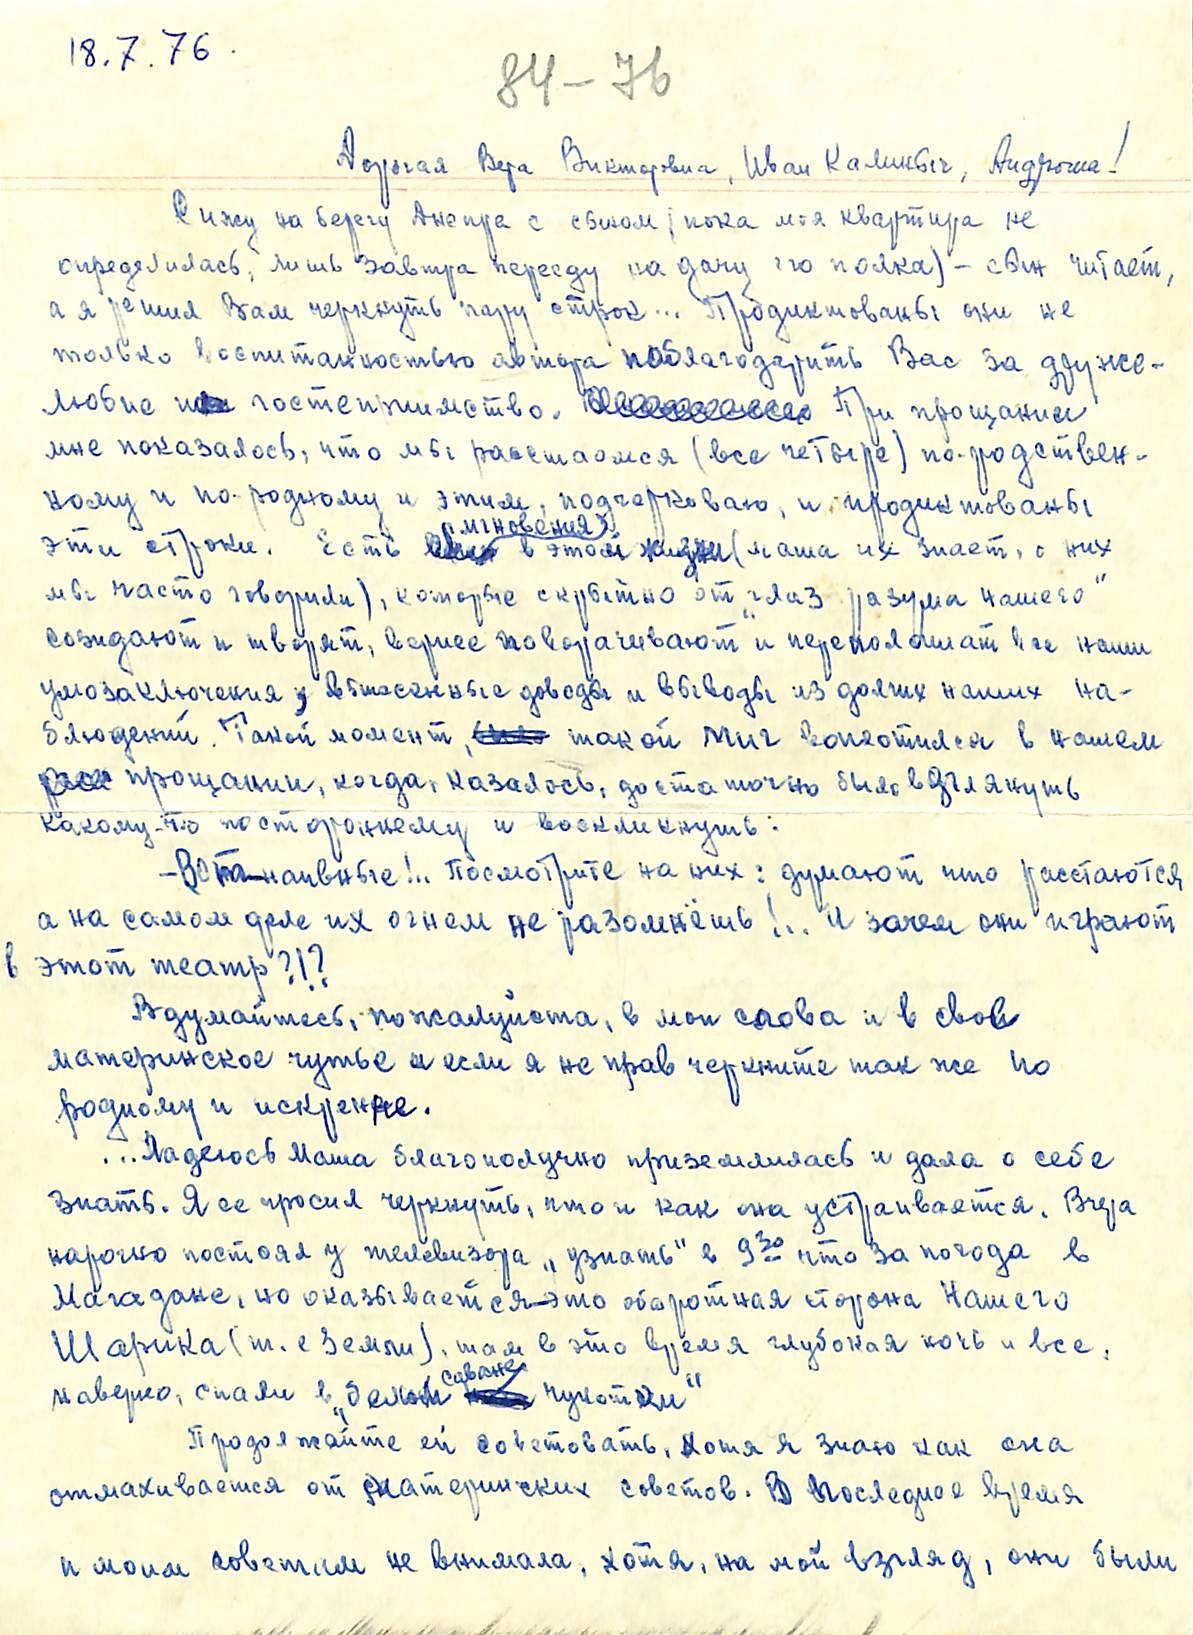 18.7.76.
84-76
Дорогая Вера Викторовна, Иван Калиныч, Андрюша!
Сижу на берегу Днепра с сыном (пока моя квартира не
определилась, лишь завтра перееду на дачу его полка) – сын читает,
а я решил Вам черкнуть пару строк... Продиктованы они не
только воспитанностью автора поблагодарить Вас за друже-
любие и гостеприимство. При прощании
мне показалось, что мы расстаемся (все четверо) по-родствен-
ному и по-родному и этим, подчеркиваю, и продиктованы
эти строки. Есть мгновения в этой жизни (маша их знает, о них
мы часто говорили), которые скрытно от "глаз разума нашего"
созидают и творят, вернее поворачивают и переполошат все наши
умозаключения, доводы и выводы из долгих наших на-
блюдений. Такой момент, такой миг воплотился в нашем
прощании, когда, казалось, достаточно было взглянуть
какому-то постороннему и воскликнуть:
– Вот наивные!.. Посмотрите на них: думают что расстаются
а на самом деле их огнем не разомнёшь!.. И зачем они играют
в этот театр?!?
Вдумайтесь, пожалуйста, в мои слова и в свое
материнское чутье и если я не прав черкните так же по
родному и искренне.
...Надеюсь Маша благополучно приземлилась и дала о себе
знать. Я ее просил черкнуть, что и как она устраивается. Вчера
нарочно постоял у телевизора „узнать" в 9 30 что за погода в
Магадане, но оказывается – это оборотная сторона Нашего
Шарика (т.е Земли), там в это время глубокая ночь и все,
наверно, спали в „белом саване Чукотки"
Продолжайте ей советовать, хотя я знаю как она
отмахивается от материнских советов. В последнее время
и моим советам не внимала, хотя, на мой взгляд, они были